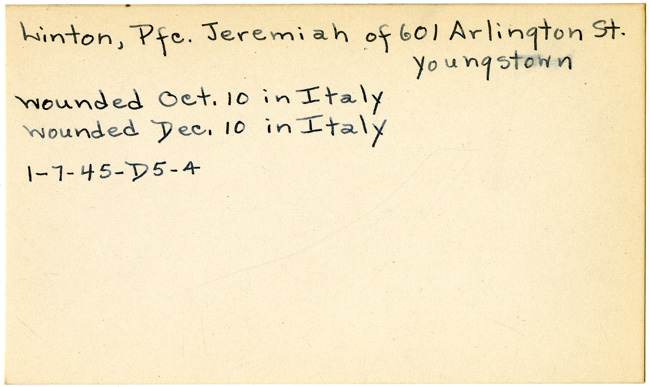 Linton, Pfc. Jeremiah of 601 Arlington St.
Youngstown
Wounded Oct. 10 in Italy
Wounded Dec. 10 in Italy
1-7-45-D5-A